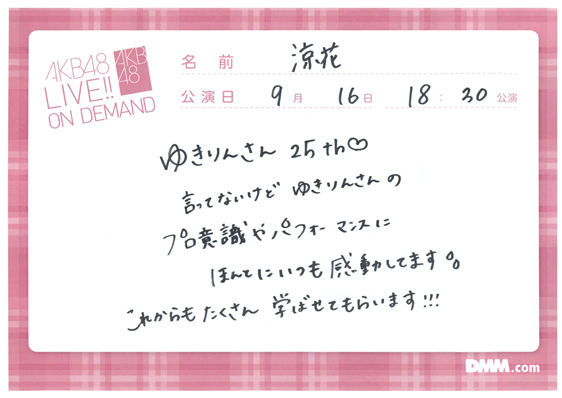 AKB48
AKB
48
LIVE!!
ON DEMAND
名 前 涼花
公演日 9月 16日 18:30公演
ゆきりんさん 25th♡
言ってないけど ゆきりんさんの
プロ意識やパフォーマンスに
ほんとにいつも感動してます。
これからもたくさん 学ばせてもらいます!!!
DMM.com